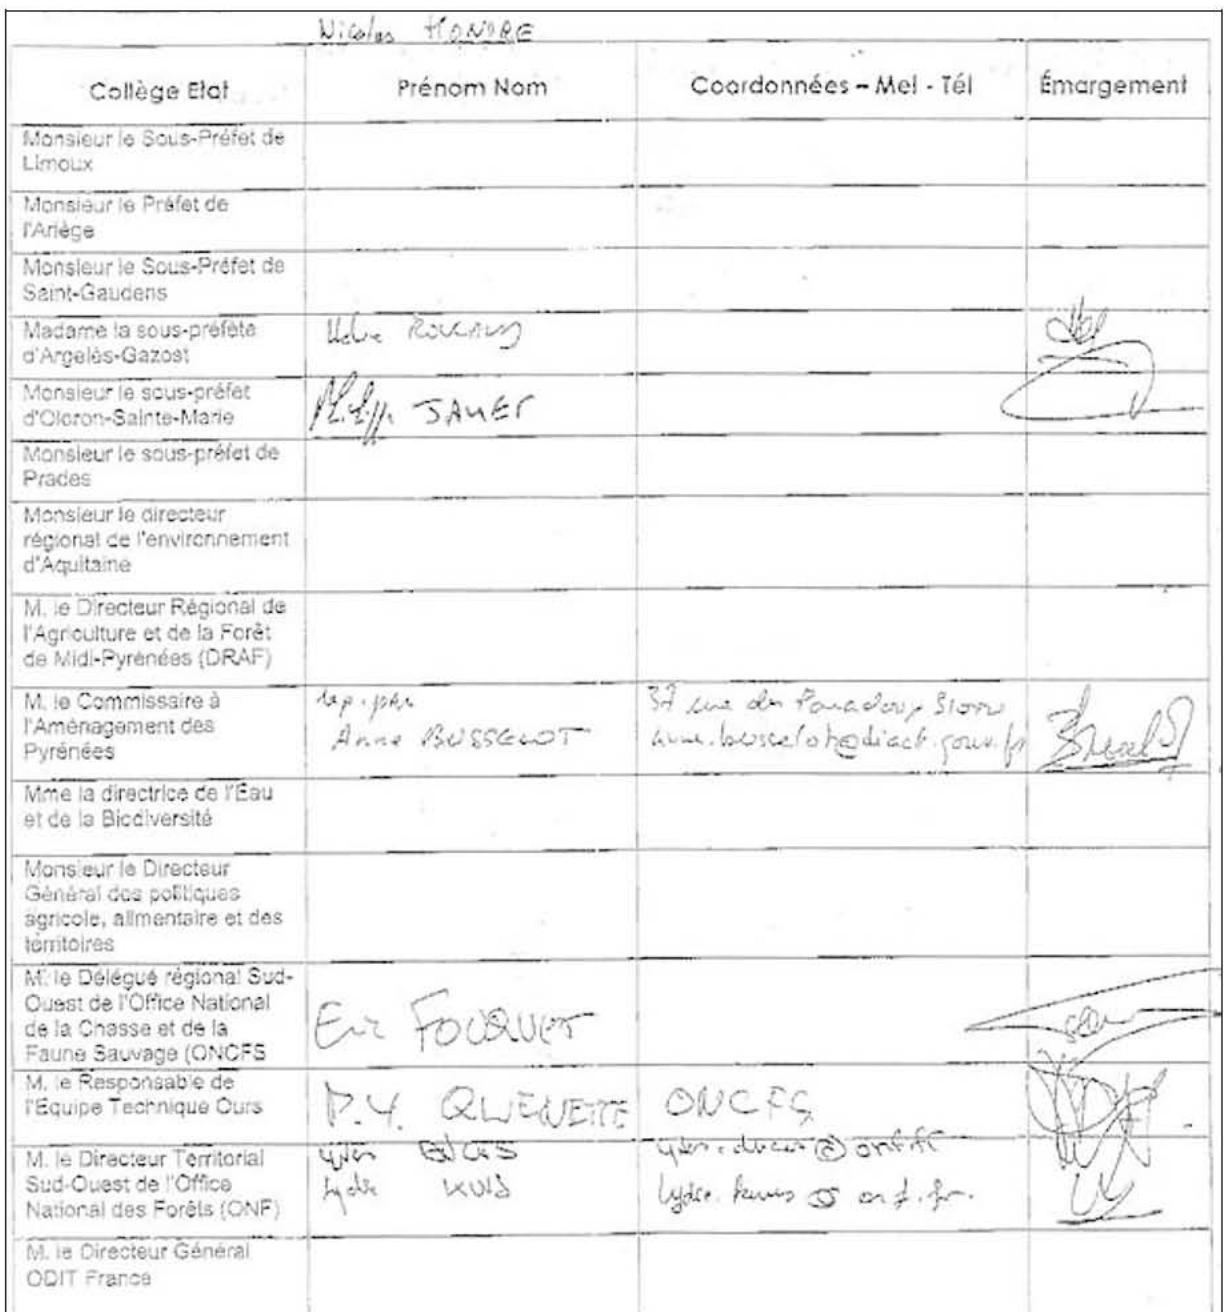 Nicolas HONORE
Collège Etat
Prénom Nom
Coordonnées – Mel - Tél
Émargement
Monsieur le Sous-Préfet de
Limoux
Monsieur le Préfet de
l'Ariège
Monsieur le Sous-Préfet de
Saint-Gaudens
Madame la sous-préfète
d'Argelès-Gazost
Monsieur le sous-préfet
d'Oloron-Sainte-Marie
Philippe
Monsieur le sous-préfet de
Prades
Monsieur le directeur
régional de l'environnement
d'Aquitaine
M. le Directeur Régional de
l'Agriculture et de la Forêt
de Midi-Pyrénées (DRAF)
M. le Commissaire à
l'Aménagement des
Pyrénées
rep. par
Anne BUSSELOT
37 rue du
anne.busselot@diact.gouv.fr
Mme la directrice de l'Eau
et de la Biodiversité
Monsieur le Directeur
Général des politiques
agricole, alimentaire et des
territoires
M. le Délégué régional Sud-
Ouest de l'Office National
de la Chasse et de la
Faune Sauvage (ONCFS
Eric FOUQUET
M. le Responsable de
l'Equipe Technique Ours
P.Y. QUENETTE
ONCFS
M. le Directeur Territorial
Sud-Ouest de l'Office
National des Forêts (ONF)
@ onf.fr
Lydie
onf.fr
M. le Directeur Général
ODIT France